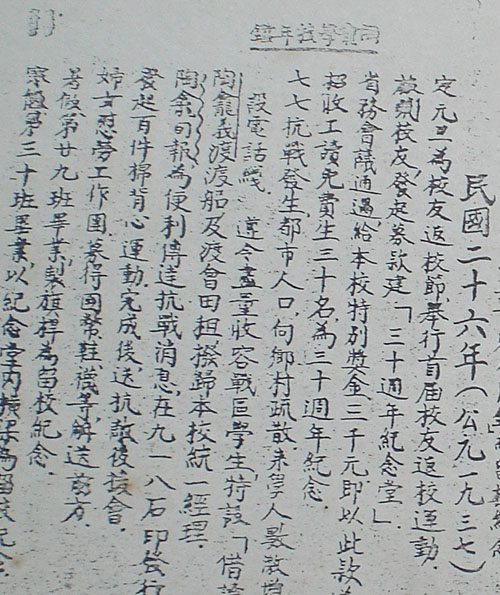 民國二十六年(公元一九三七)
定元旦為校友返校節,舉行首屆校友返校運動.
校友,發起募款建「三十週年紀念堂」.
省務會議通過,給本校特別獎金三千元,即以此款
招收工讀免費生三十名,為三十週年紀念.
七七抗戰發生,都市人口,向鄉村疏散,來學人數激增
設電話綫. 遵令盡量收容戰區學生,特設「借讀
陶龕義渡渡船及渡會田担撥歸本校統一經理.
陶龕旬報為便利傳達抗戰消息,在九一八石印發行
發起百件棉背心運動,完成後,送抗敵後援會.
婦女慰勞工作團,募得國幣,鞋,襪等,解送前方.
暑假第廿九班畢業,製旗桿為留校紀念.
寒假第三十班畢業,以紀念堂內橫梁為留校紀念.